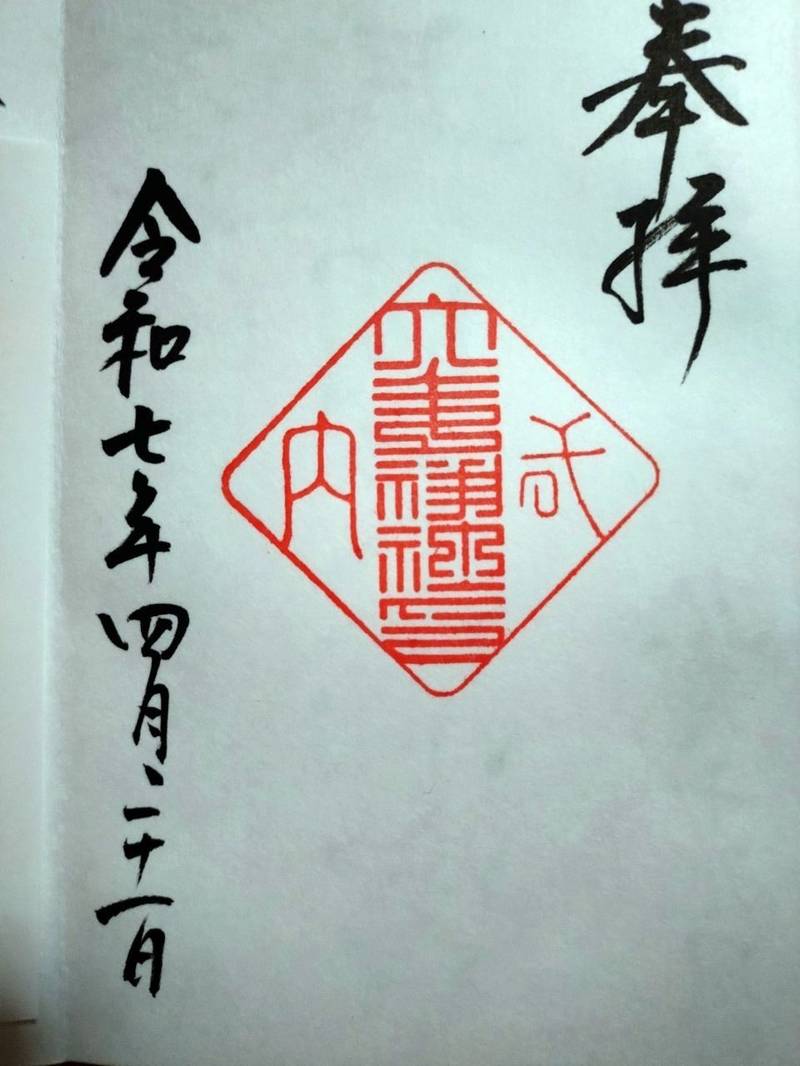 奉拝
内
令和七年四月二十一日